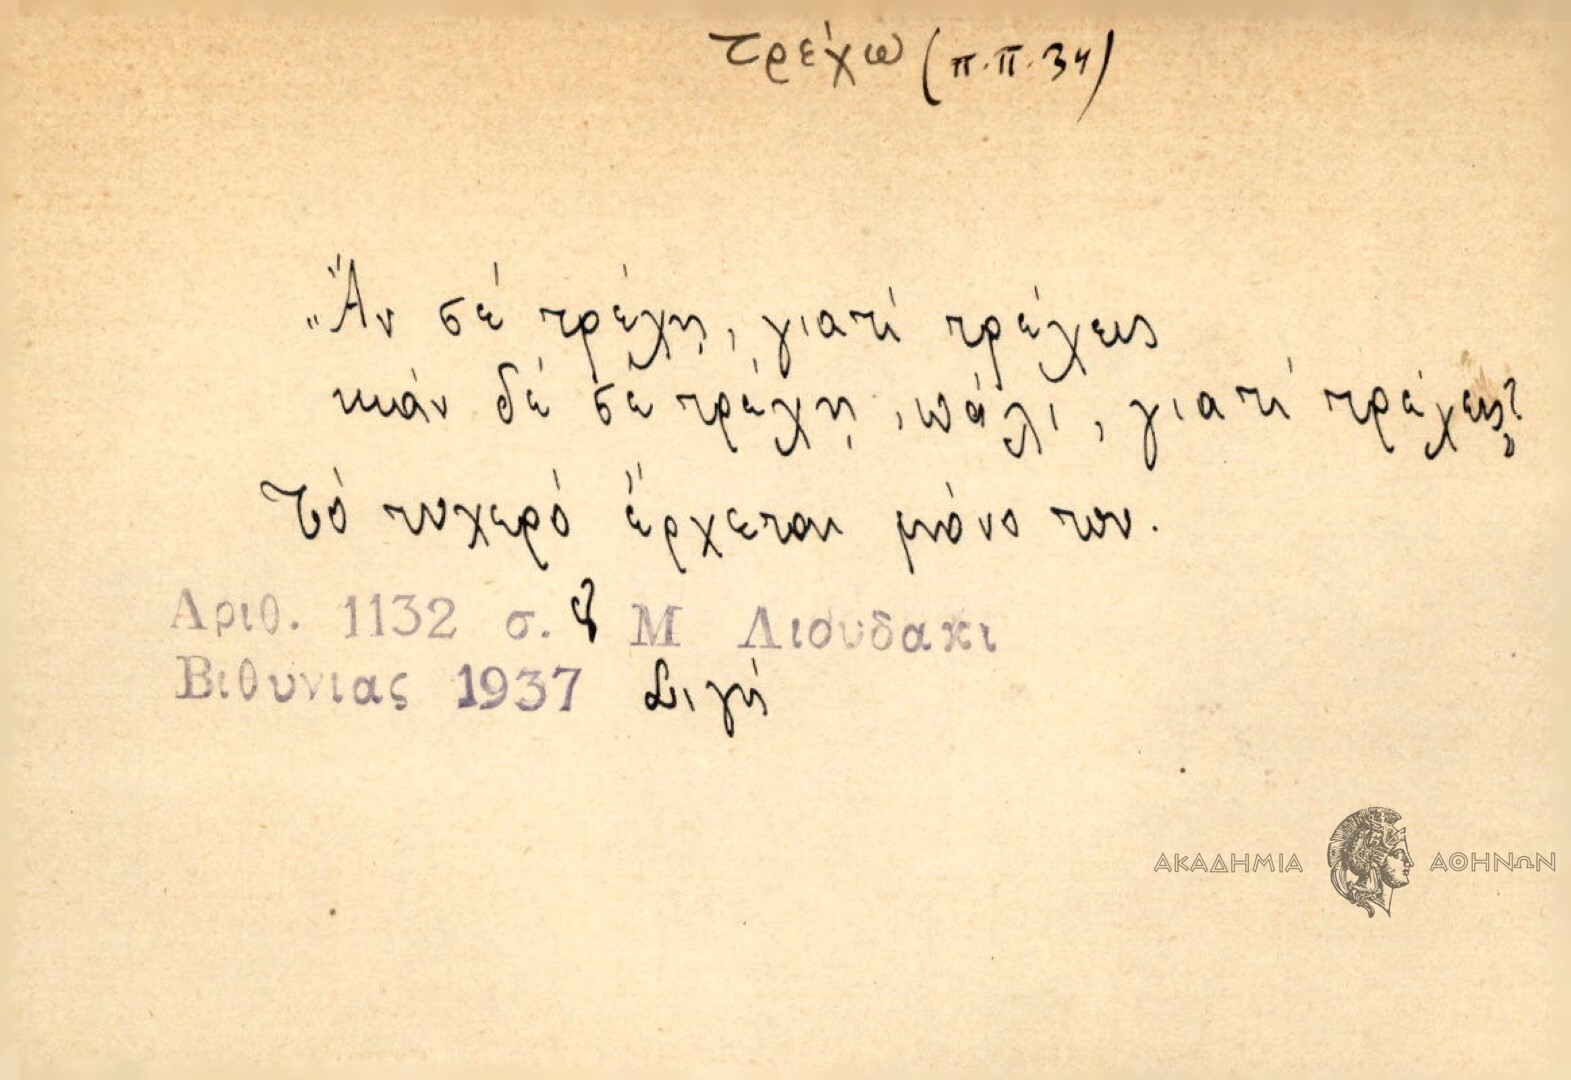 τρέχω (π.π. 34)
"Ἄν σέ τρέχῃ, γιατί τρέχεις
κιἄν δέ σέ τρέχῃ, πάλι, γιατί τρέχεις;
Τό τυχερό ἔρχεται μόνο του.
Αριθ. 1132 σ. 8 Μ Λιουδακι
Βιθυνιας 1937 Σιγή
ΑΚΑΔΗΜΙΑ ΑΘΗΝΩΝ